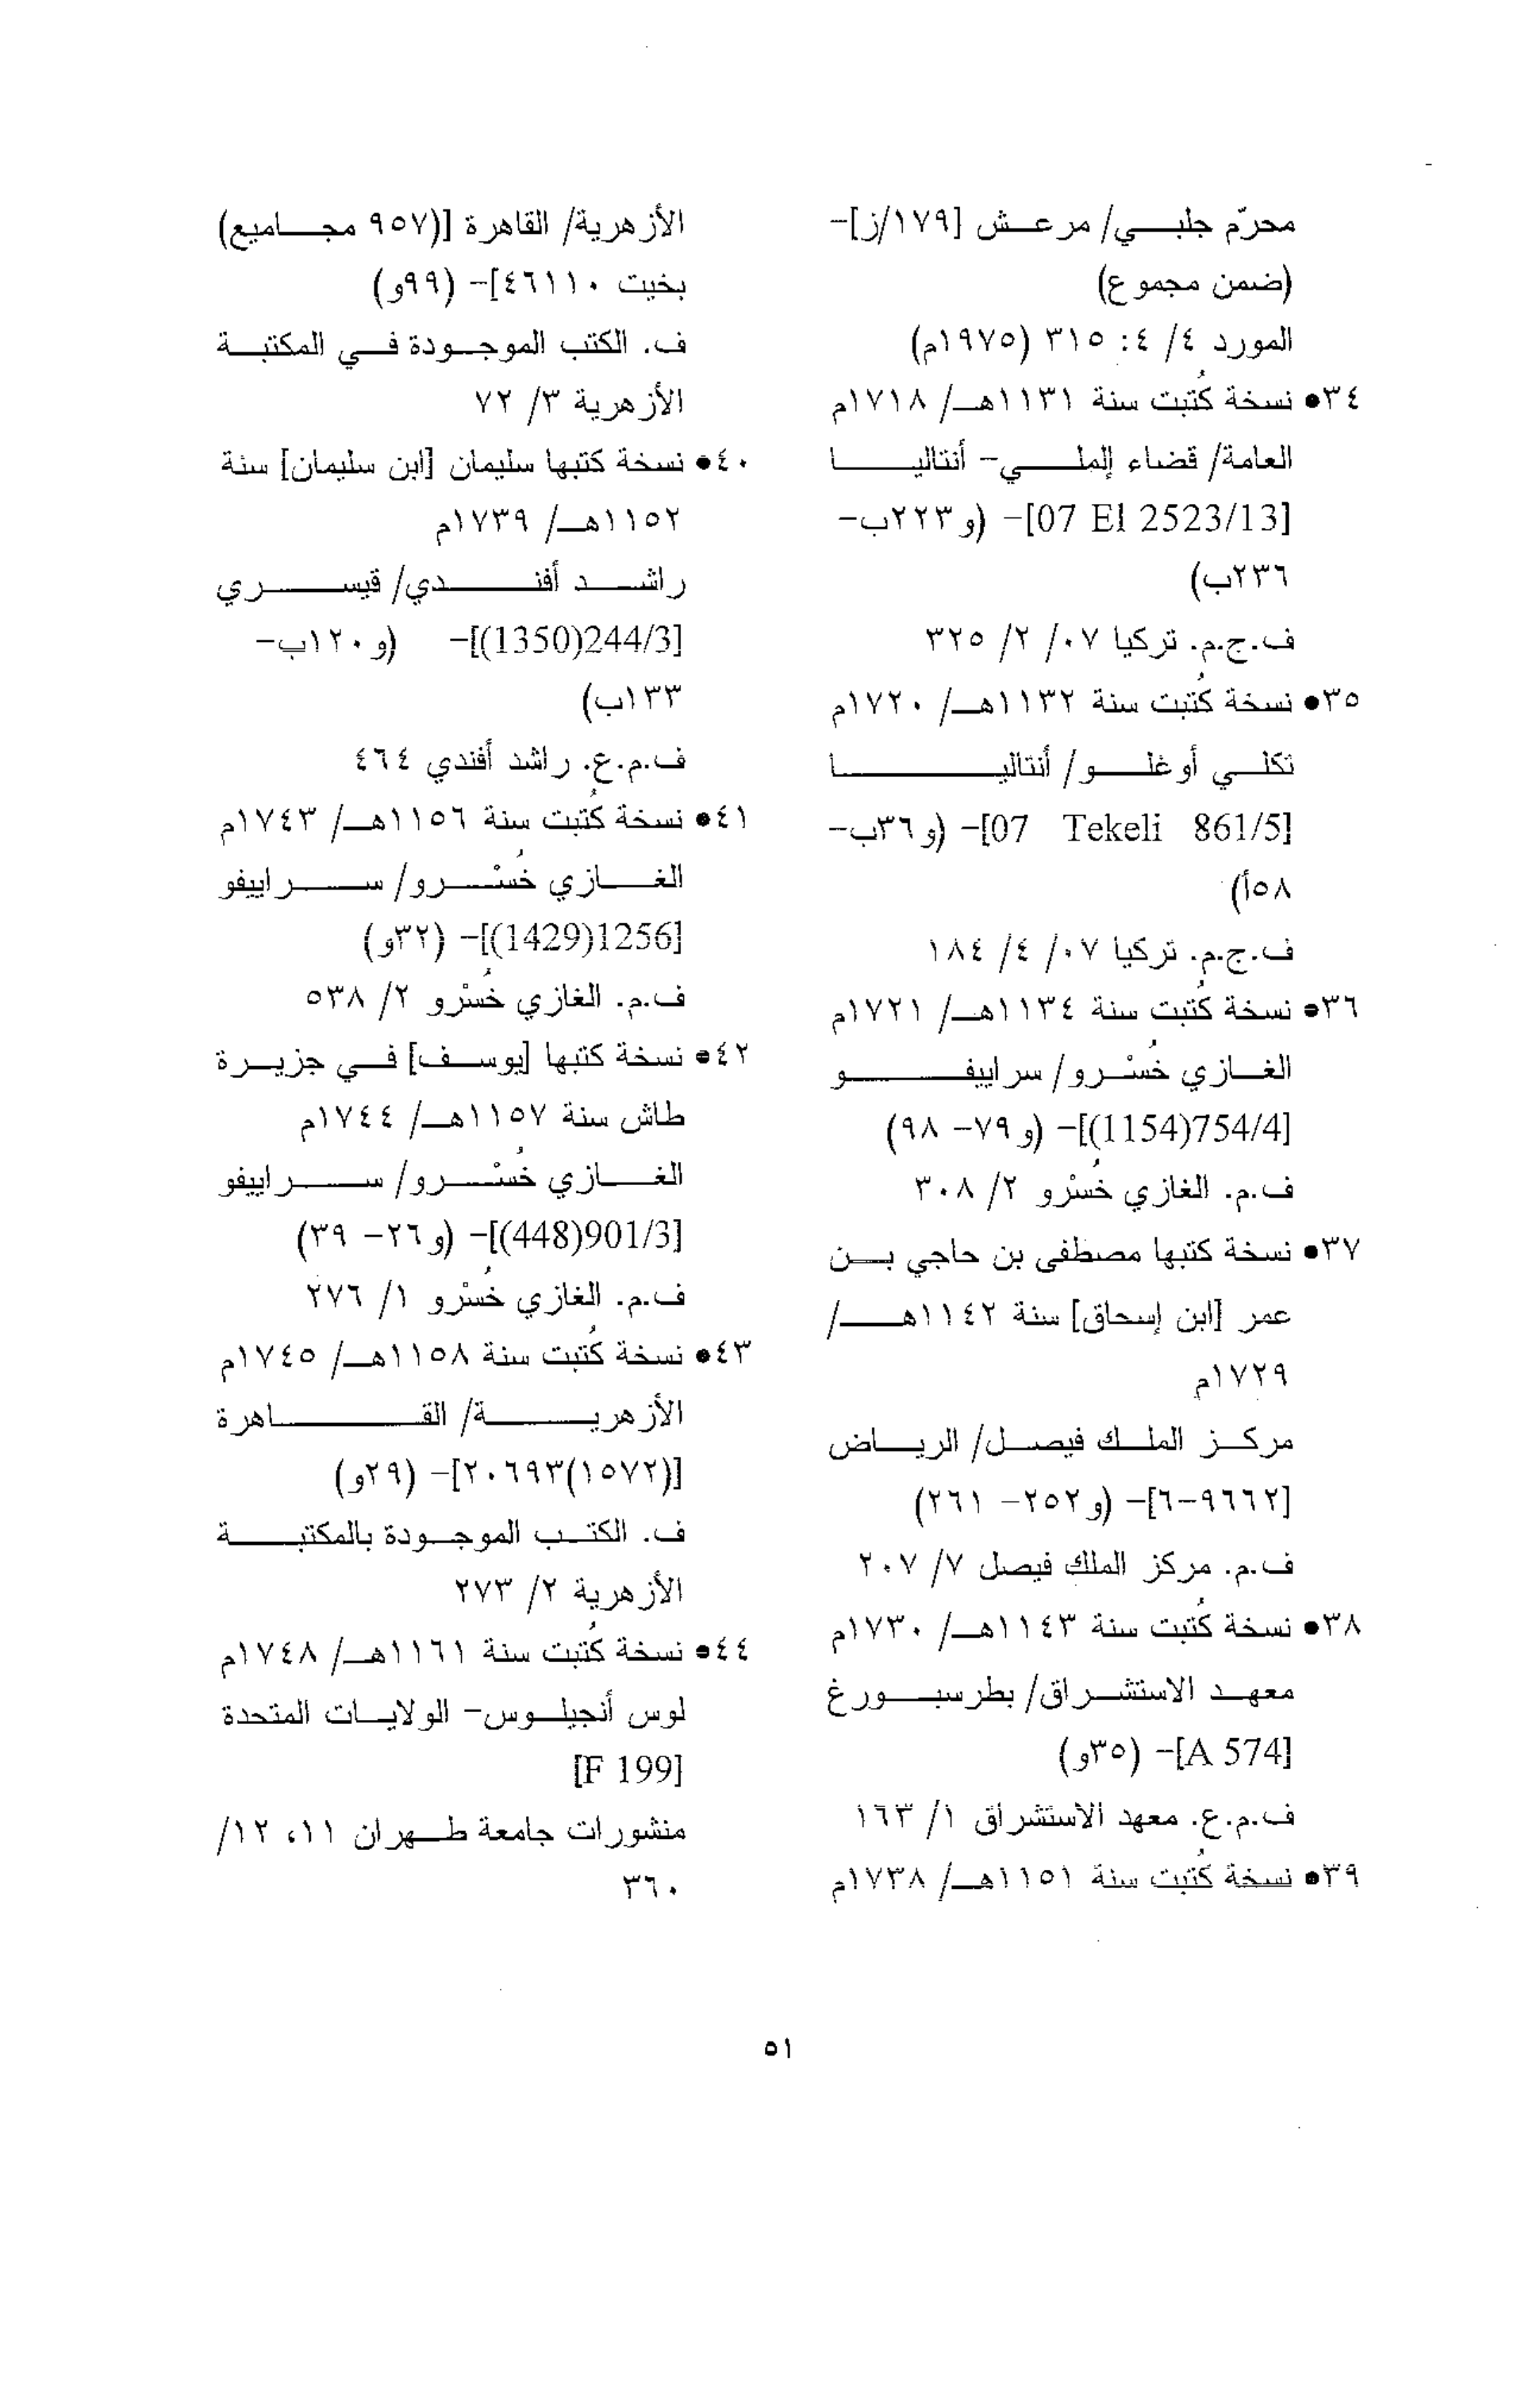 محرّم جلبي/ مرعش [١٧٩/ز]-
(ضمن مجموع)
المورد ٤/ ٤: ٣١٥ (١٩٧٥م)
٣٤• نسخة كُتبت سنة ١١٣١هـ/ ١٧١٨م
العامة/ قضاء إلملي- أنتاليا
[07 El 2523/13]- (و٢٢٣ب-
٢٣٦ب)
ف.ج.م. تركيا ٠٧/ ٢/ ٣٢٥
٣٥• نسخة كُتبت سنة ١١٣٢هـ/ ١٧٢٠م
تكلي أوغلو/ أنتاليا
[07 Tekeli 861/5]- (و٣٦ب-
٥٨أ)
ف.ج.م. تركيا ٠٧/ ٤/ ١٨٤
٣٦• نسخة كُتبت سنة ١١٣٤هـ/ ١٧٢١م
الغازي خُسْرو/ سراييفو
[754/4(1154)]- (و٧٩- ٩٨)
ف.م. الغازي خُسْرو ٢/ ٣٠٨
٣٧• نسخة كتبها مصطفى بن حاجي بن
عمر [ابن إسحاق] سنة ١١٤٢هـ/
١٧٢٩م
مركز الملك فيصل/ الرياض
[٩٦٦٢-٦]- (و٢٥٢- ٢٦١)
ف.م. مركز الملك فيصل ٧/ ٢٠٧
٣٨• نسخة كُتبت سنة ١١٤٣هـ/ ١٧٣٠م
معهد الاستشراق/ بطرسبورغ
[A 574]- (٣٥و)
ف.م.ع. معهد الاستشراق ١/ ١٦٣
٣٩• نسخة كُتبت سنة ١١٥١هـ/ ١٧٣٨م
الأزهرية/ القاهرة [(٩٥٧ مجاميع)
بخيت ٤٦١١٠]- (٩٩و)
ف. الكتب الموجودة في المكتبة
الأزهرية ٣/ ٧٢
٤٠• نسخة كتبها سليمان [ابن سليمان] سنة
١١٥٢هـ/ ١٧٣٩م
راشد أفندي/ قيسري
[244/3(1350)]- (و١٢٠ب-
١٣٣ب)
ف.م.ع. راشد أفندي ٤٦٤
٤١• نسخة كُتبت سنة ١١٥٦هـ/ ١٧٤٣م
الغازي خُسْرو/ سراييفو
[1256(1429)]- (٣٢و)
ف.م. الغازي خُسْرو ٢/ ٥٣٨
٤٢• نسخة كتبها [يوسف] في جزيرة
طاش سنة ١١٥٧هـ/ ١٧٤٤م
الغازي خُسْرو/ سراييفو
[901/3(448)]- (و٢٦- ٣٩)
ف.م. الغازي خُسْرو ١/ ٢٧٦
٤٣• نسخة كُتبت سنة ١١٥٨هـ/ ١٧٤٥م
الأزهرية/ القاهرة
[(١٥٧٢)٢٠٦٩٣]- (٢٩و)
ف. الكتب الموجودة بالمكتبة
الأزهرية ٢/ ٢٧٣
٤٤• نسخة كُتبت سنة ١١٦١هـ/ ١٧٤٨م
لوس أنجيلوس- الولايات المتحدة
[F 199]
منشورات جامعة طهران ١١، ١٢/
٣٦٠
٥١